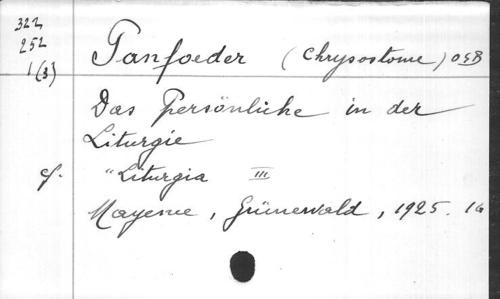 322
252
1(3)
Panfoeder (Chrysostome) OSB
Das Persönliche in der
Liturgie
cf. "Liturgia III
Mayence, Grünewald, 1925. 16